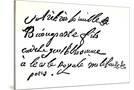 de
Buonaparte fils
cadet gentilhomme
a l'ecole royale militaire de
paris